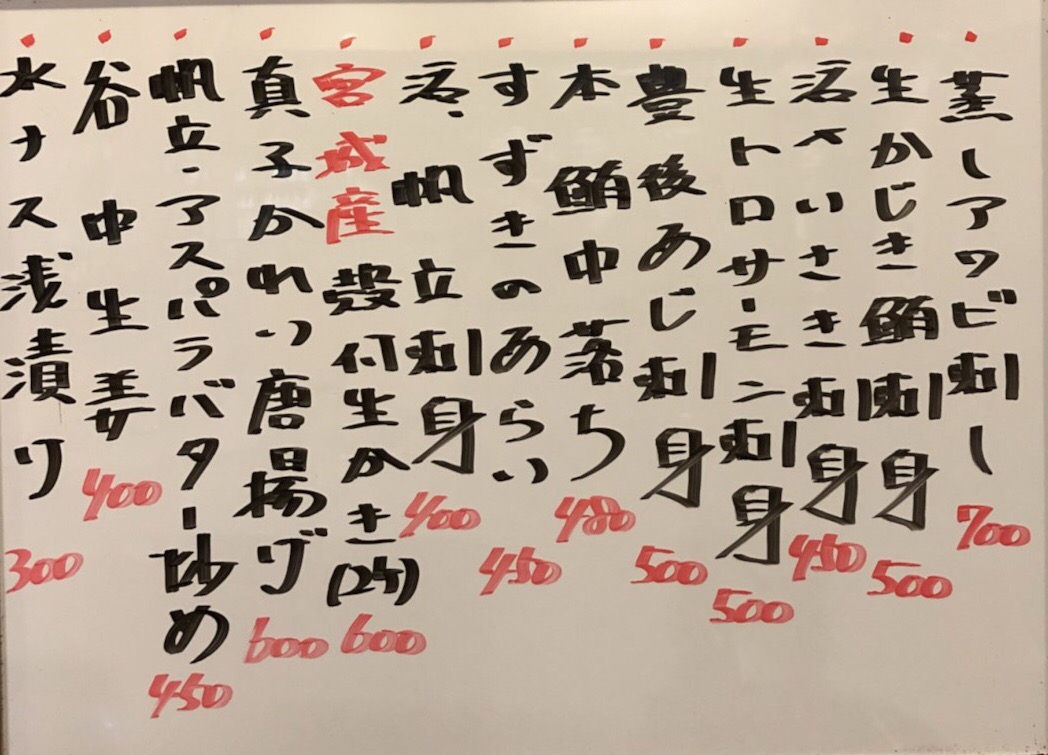 蒸しアワビ刺し 700
生かじき鮪刺身 500
活〆いさき刺身 450
生トロサーモン刺身 500
豊後あじ刺身 500
本鮪中落ち 480
すずきのあらい 450
活、帆立刺身 400
宮城産殻付生かき(2ケ) 600
真子かれい唐揚げ 600
帆立・アスパラバター炒め 450
谷中生姜 400
水ナス浅漬り 300